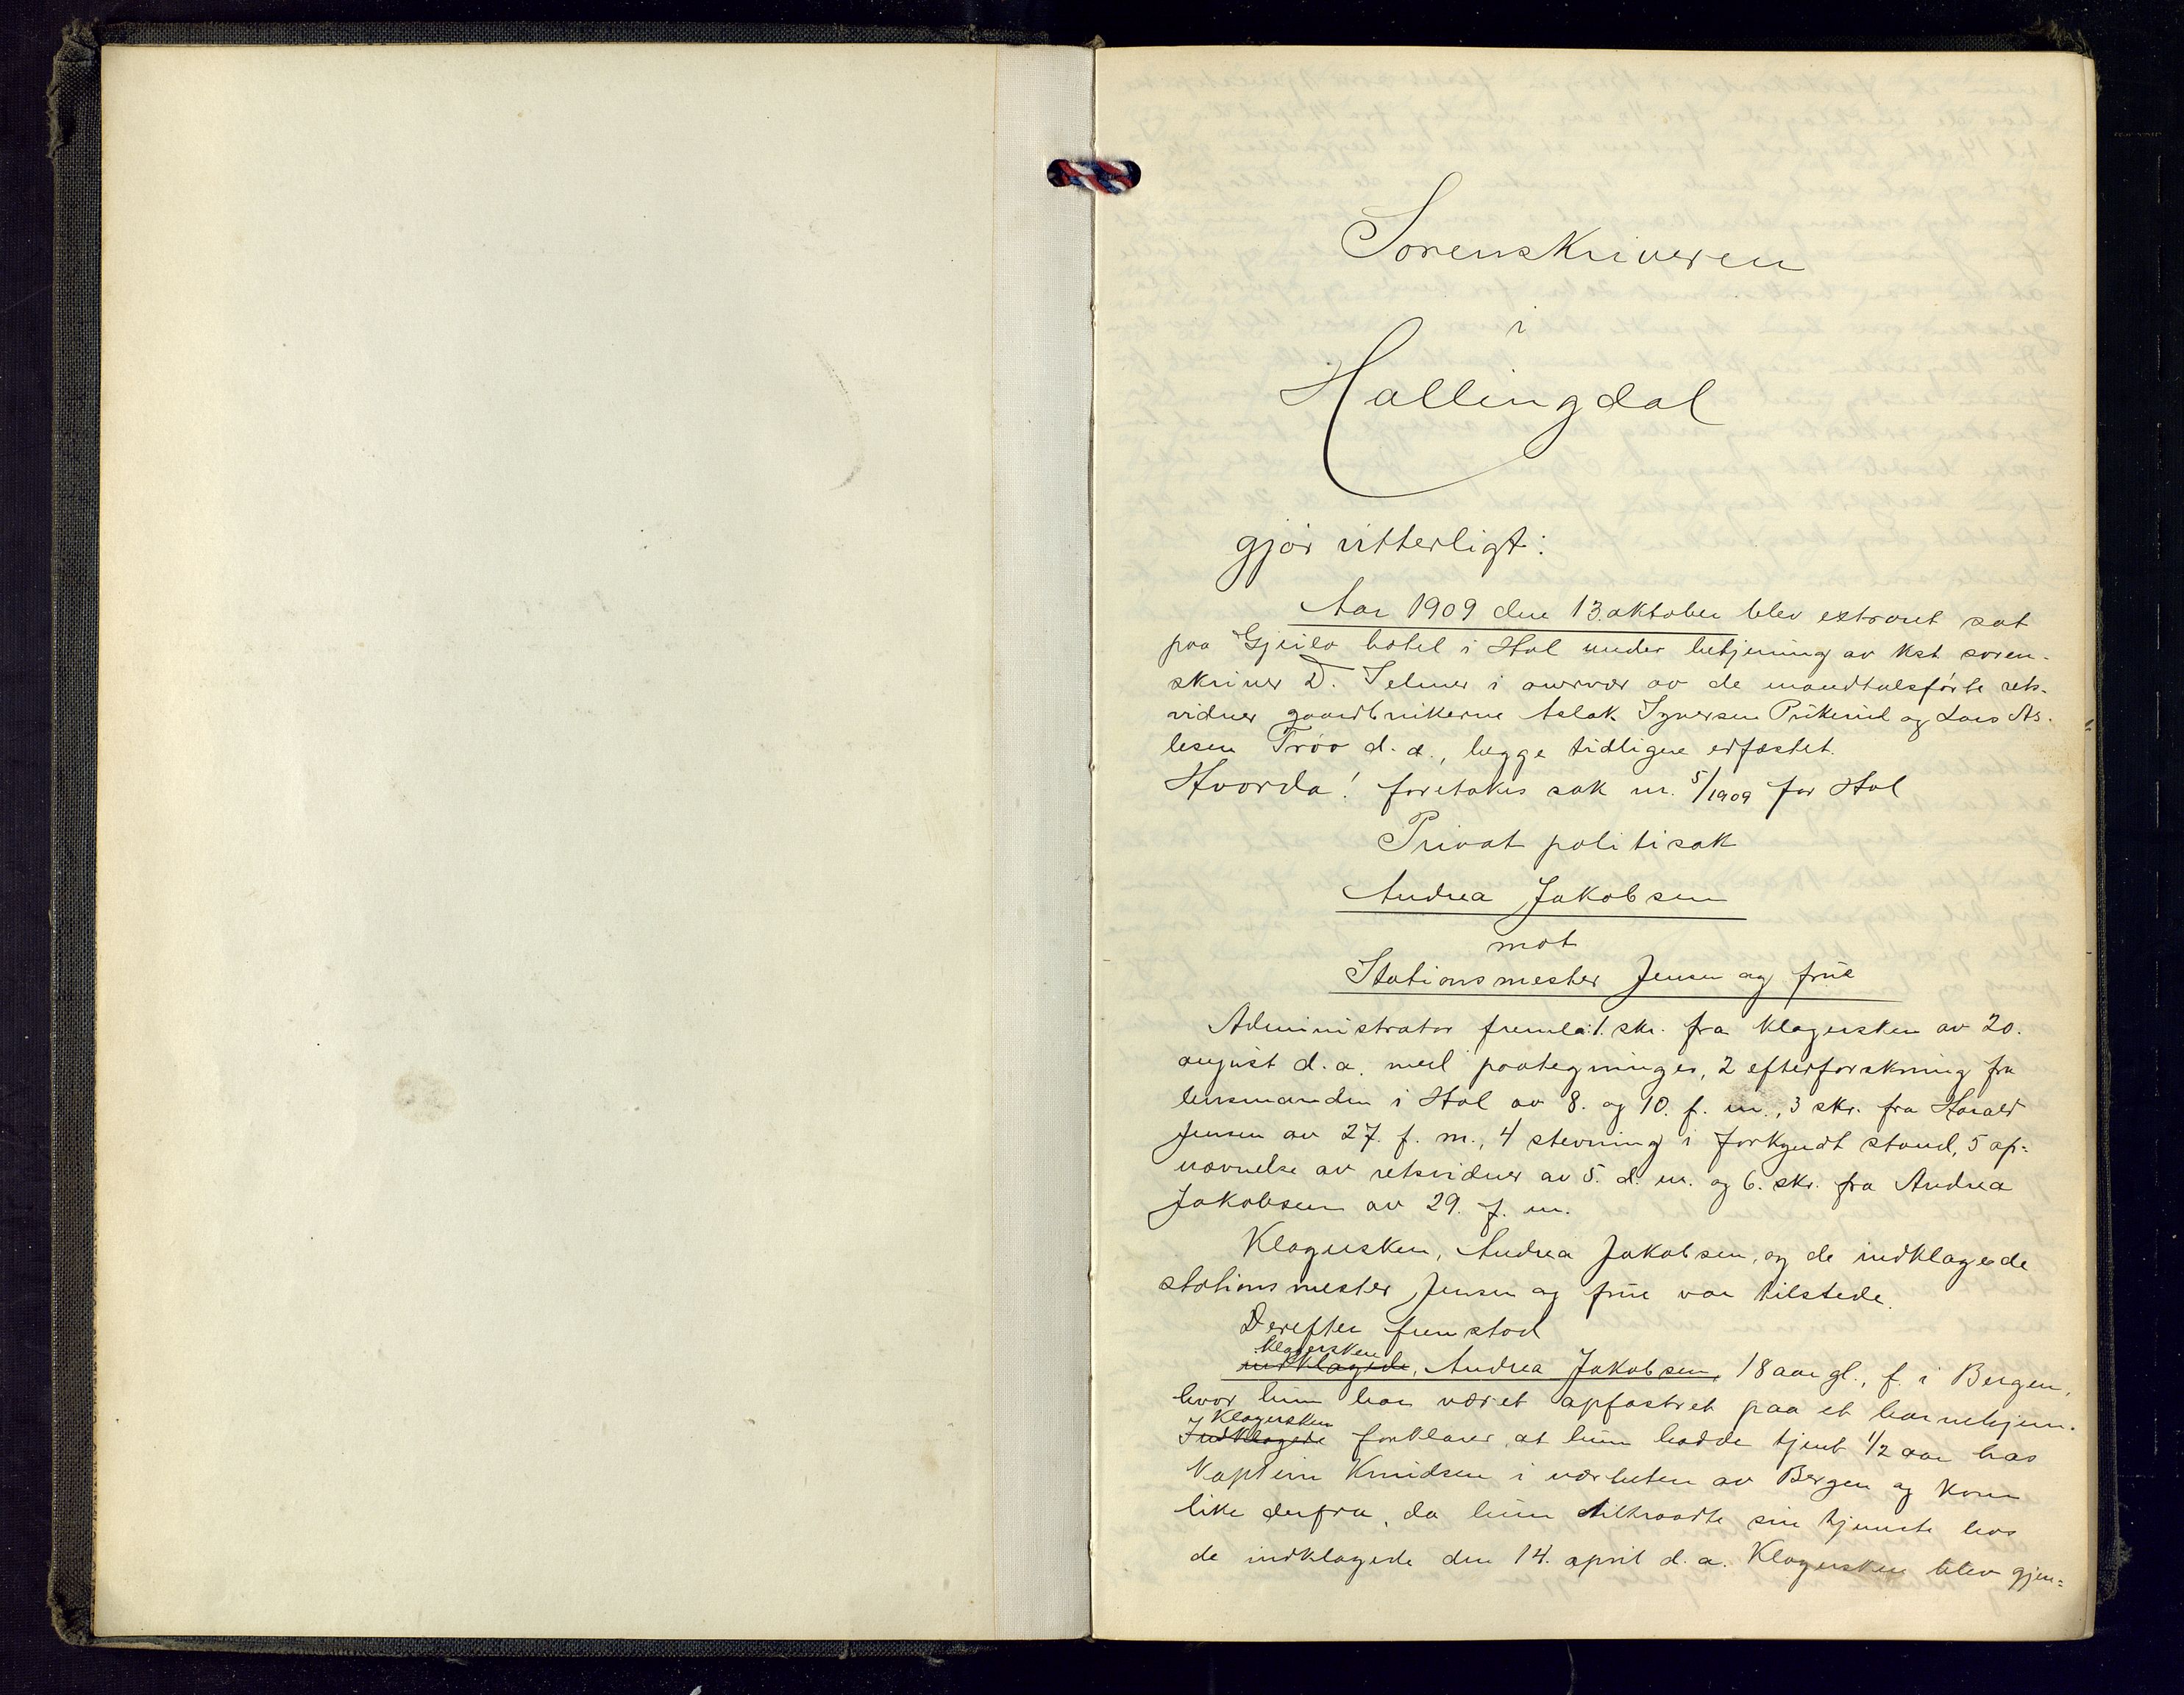 Sorenskriveren
i
Hallingdal
gjör vitterligt:
Aar 1909 den 13. oktober blev extraret sat
paa Gjeilo hotel i Hol under betjening av kst. soren-
skriver D. Selmer i overvær av de mandtalsförte rets-
vidner gaardbrukerne Aslak Iversen Prikerud og Lars As-
lesen Tröo d. æ., begge tidligere edfæstet.
Hvorda! foretokes sak nr. 5/1909 for Hol
Privat politisak
Andrea Jakobsen
mot
Stationsmester Jensen og frue
Administrator fremla: 1. skr. fra klagersken av 20.
august d. a. med paategninger, 2 efterforskning fra
lensmanden i Hol av 8. og 10. f. m., 3 skr. fra Harald
Jensen av 27. f. m., 4 stevning i forkyndt stand, 5 op-
nævnelse av retsvidner av 5. d. m. og 6. skr. fra Andrea
Jakobsen av 29. f. m.
Klagersken, Andrea Jakobsen, og de indklagede
stationsmester Jensen og frue var tilstede.
Derefter fremstod
klagersken
indklagede, Andrea Jakobsen, 18 aar gl., f. i Bergen,
hvor hun har været opfostret paa et barnehjem.
Klagersken
Indklagede forklarer, at hun hadde tjent 1/2 aar hos
kaptein Knudsen i nærheten av Bergen og kom
like derfra, da hun tiltraadte sin tjeneste hos
de indklagede den 14. april d. a. Klagersken blev gjen=